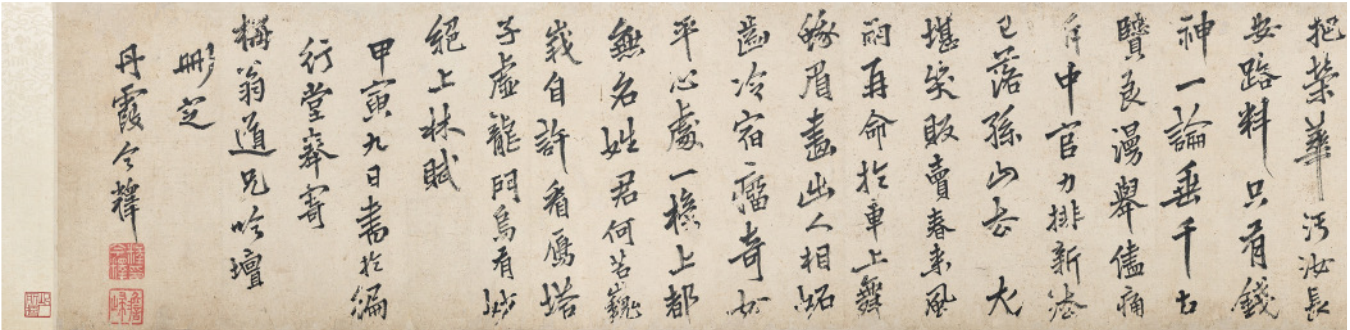 把榮華污汝長
安路料只有錢
神一論垂千古
賢良漫舉儘痛
斥中官力排新法
已落孫山去大
堪笑販賣春来風
雨再命於車上舞
緣眉畫出人相妬
齒冷宿瘤奇女
平心處一榜上都
無名姓君何苦巍
峩自許看雁塔
子虛龍門烏有妙
絕上林賦
甲寅九日書於編
行堂奉寄
稱翁道兄吟壇
刪定
丹霞今釋